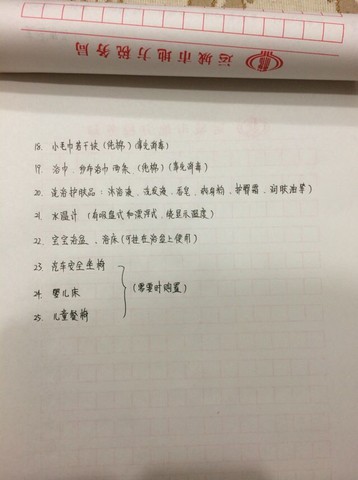 运城市地方税务局
18. 小毛巾若干块(纯棉)(事先消毒)
19. 浴巾、纱布浴巾 两条 (纯棉)(事先消毒)
20. 洗浴护肤品:沐浴液、洗发液、香皂、爽身粉、护臀霜、润肤油等)
21. 水温计 (有吸盘式和漂浮式,能显示温度)
22. 宝宝浴盆、浴床(可挂在浴盆上使用)
23. 汽车安全坐椅
24. 婴儿床 (需要时购置)
25. 儿童餐椅